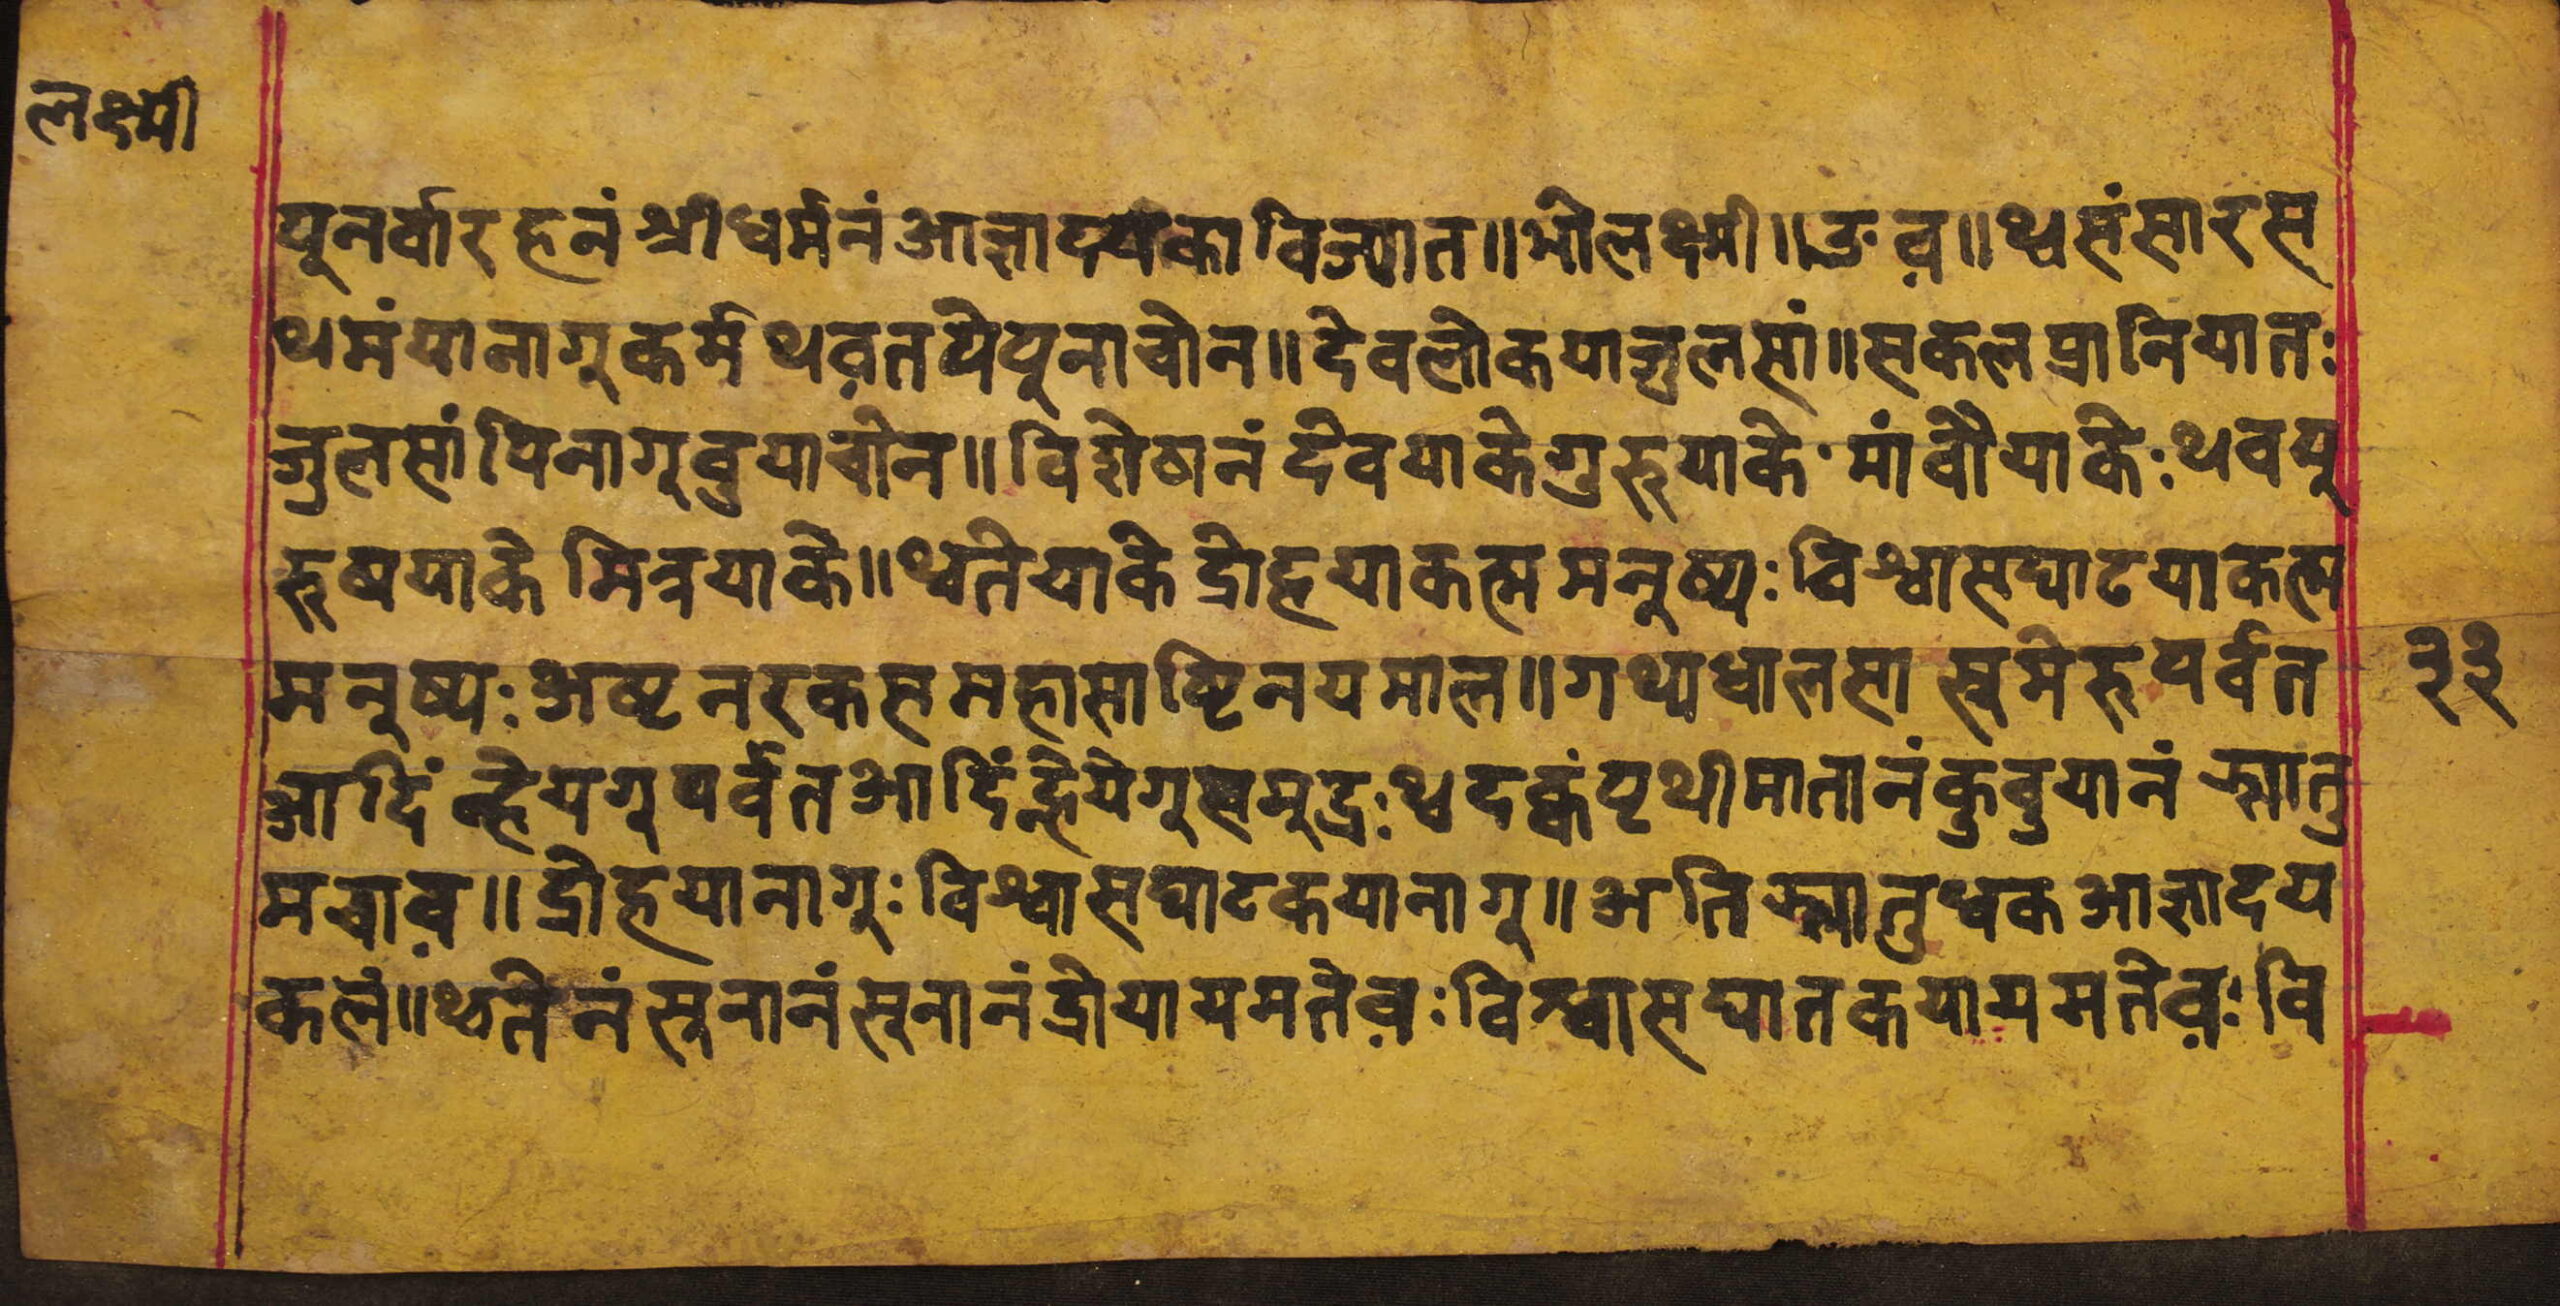 लक्ष्मी
पूनर्वार हनं श्रीधर्मनं आज्ञा दयका विज्यात॥ भो लक्ष्मी॥ ङव॥ थ्व संसारस
थमं याना गू कर्म थवत पे पूना चोन॥ देवलोकया जुलसां॥ सकल प्रानियात:
जुलसां पिना गू वुया चोन॥ विशेषनं देवयाके गुरुयाके. मां वौयाके: थव पू
रुषयाके मित्रयाके॥ थ्वतेयाके द्रोह याकह्म मनूष्य: विश्वासघाट याकह्म
मनूष्य: अष्ट नरकस महासाष्टि नय माल॥ गथ्य धालसा सूमेरु पर्वत
आदिं ल्हेयगू पर्वत आदिं ल्हेयेगू समूद्र: थ्वदक्वं पृथीमातानं कुवुयानं झ्यातु
मचाव॥ द्रोह यानागू: विश्वासघाटक यानागू॥ अति झ्यातु ध्वक आज्ञा दय
कलं॥ थ्वतेनं सूनानं सूनानं द्रोयाय मतेव: विश्वासघातक याय मतेव: वि
३३